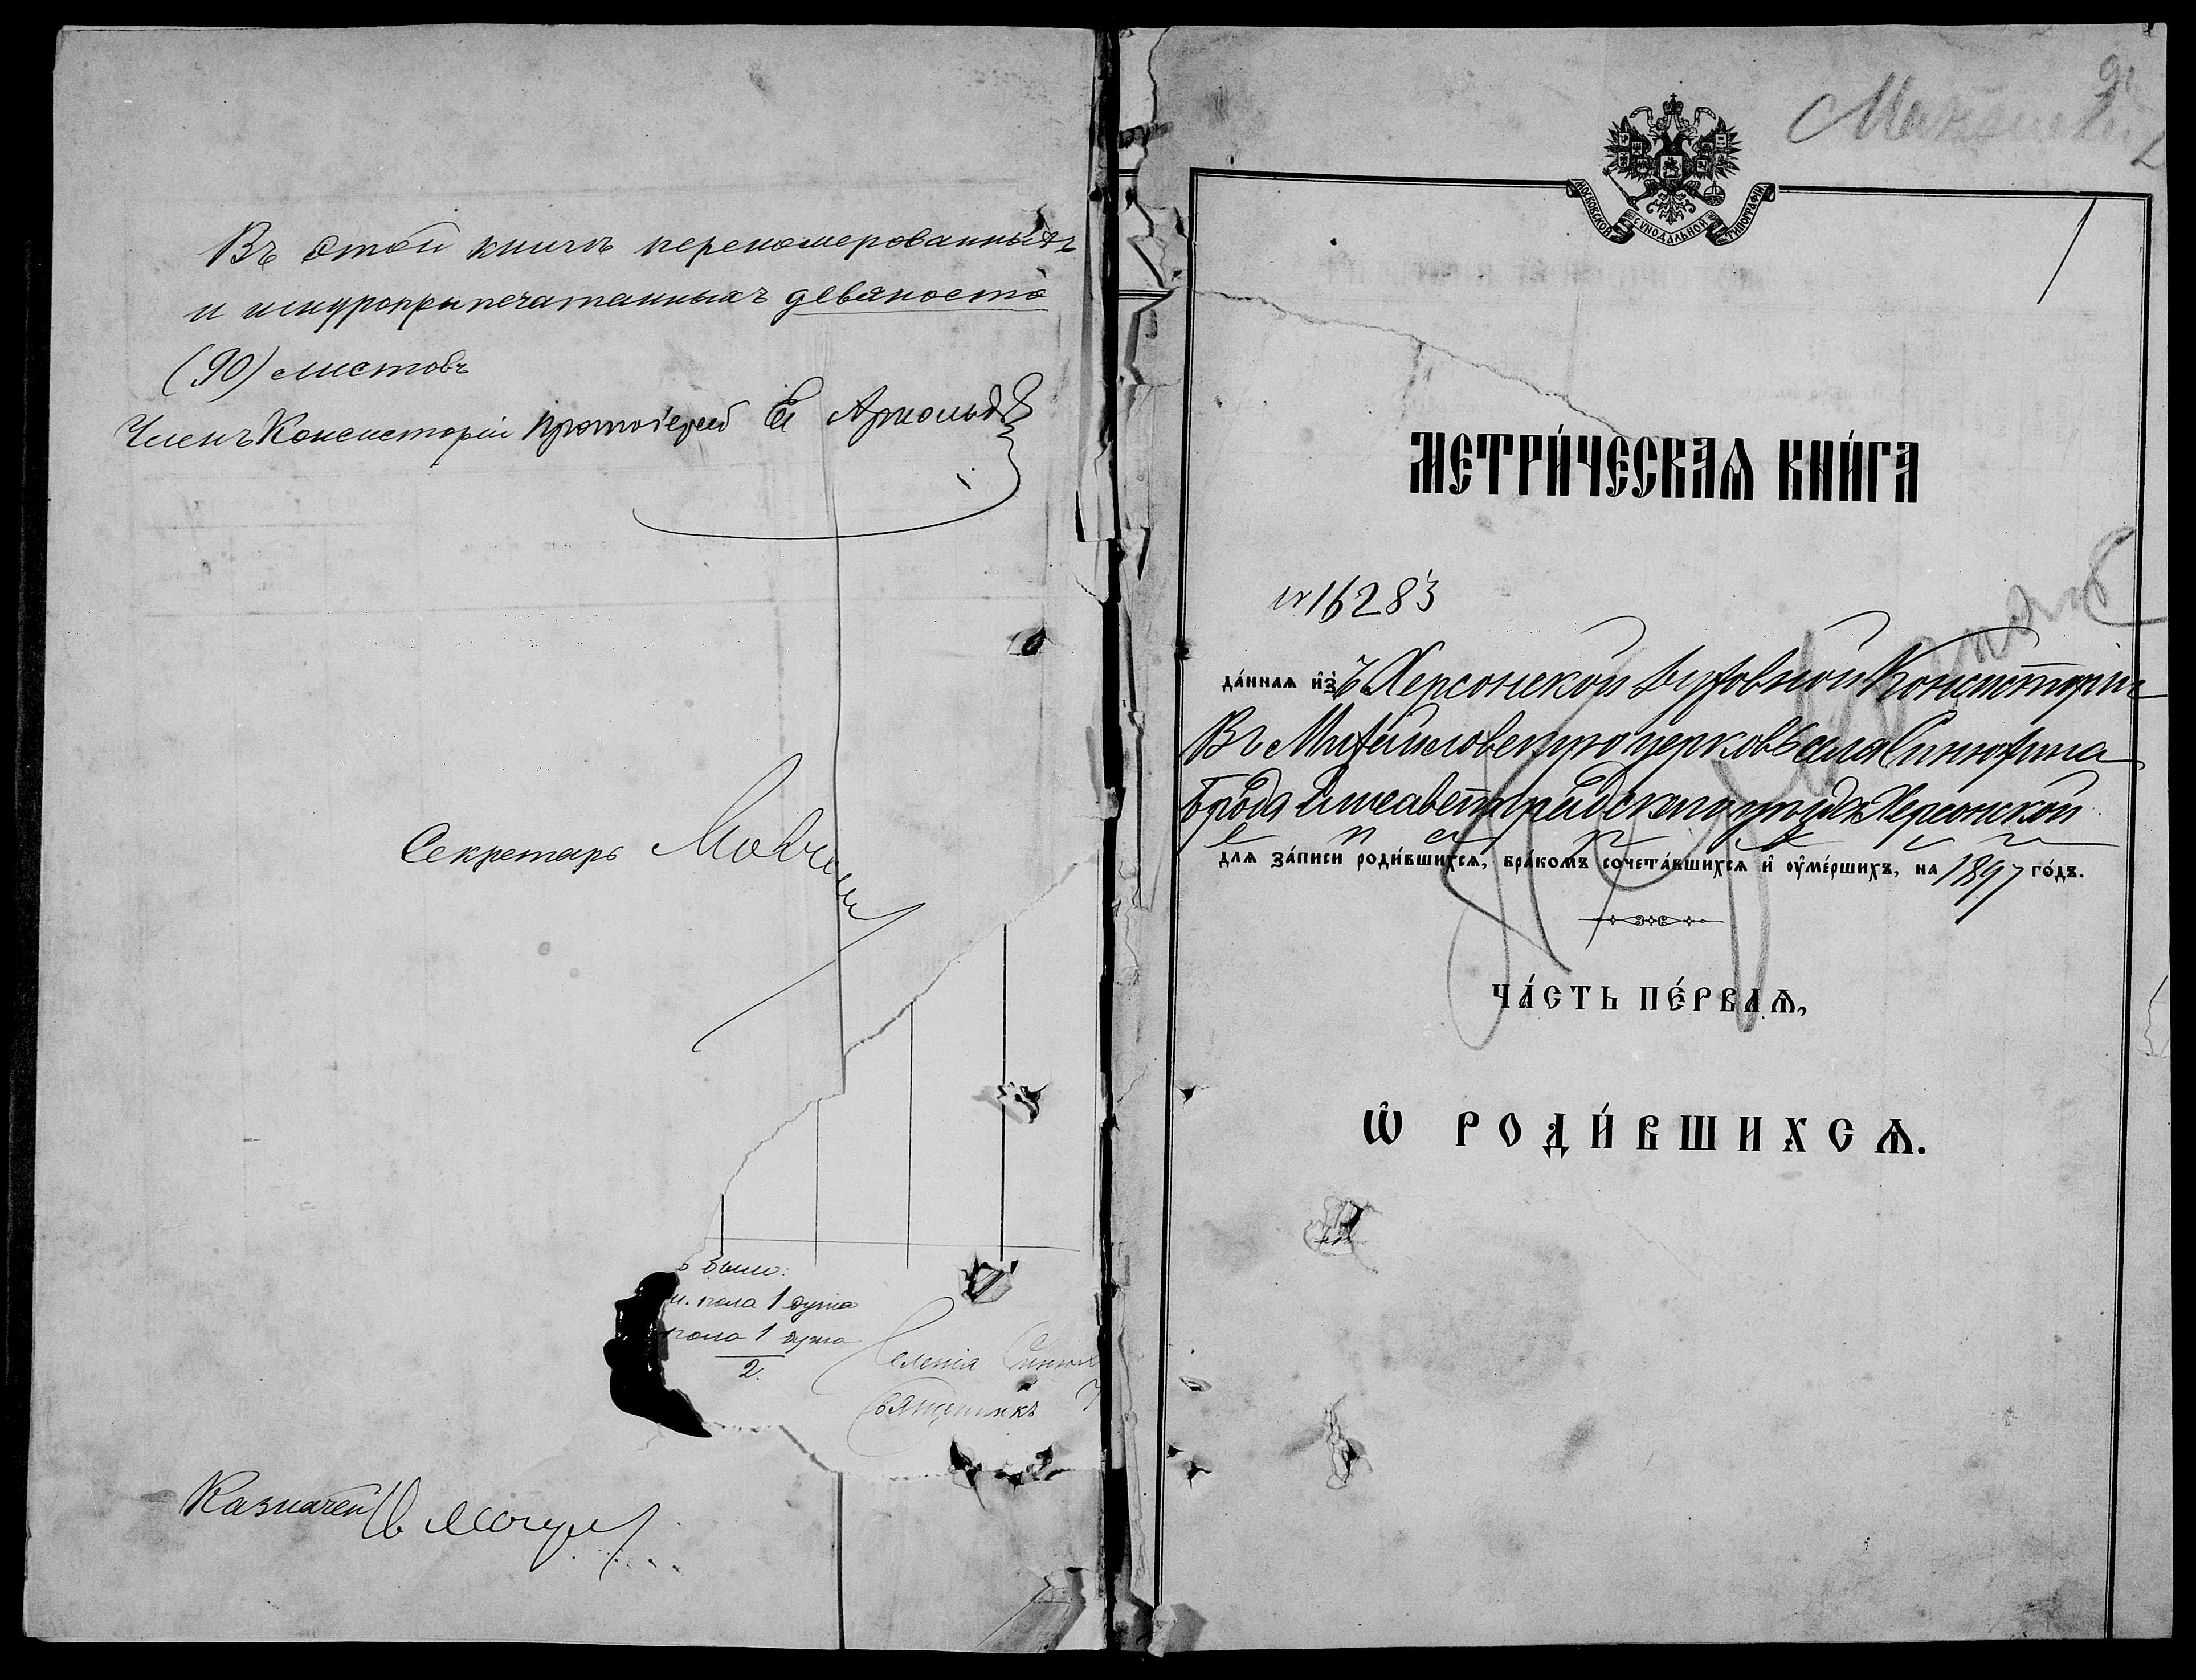 Въ этой книгѣ перенумерованныхъ
и шнуроприпечатанныхъ девяносто
(90) листовъ
Членъ Консисторіи Протоіерей Арнольдъ
Секретарь
ъ было:
м. пола 1 душа
пола 1 душа
2.
Селенія Синюх
Священникъ
Казначей
МОСКОВСКОЙ СУНОДАЛЬНОЙ ТИПОГРАФІИ
1
МЕТРИ́ЧЕСКАѦ КНИ́ГА
№ 16283
да́ннаѧ и҆зъ Херсонской Духовной Консисторіи
Въ Михайловскую церковь села Синюхина
Брода Елисаветградскаго уѣзда Херсонской
епархіи
для за́писи роди́вшихсѧ, бра́комъ сочета́вшихсѧ и҆ оу҆ме́ршихъ, на 1897 го́дъ.
ЧА́СТЬ ПЕ́РВАѦ,
Ѡ҆ РОДИ́ВШИХСѦ.